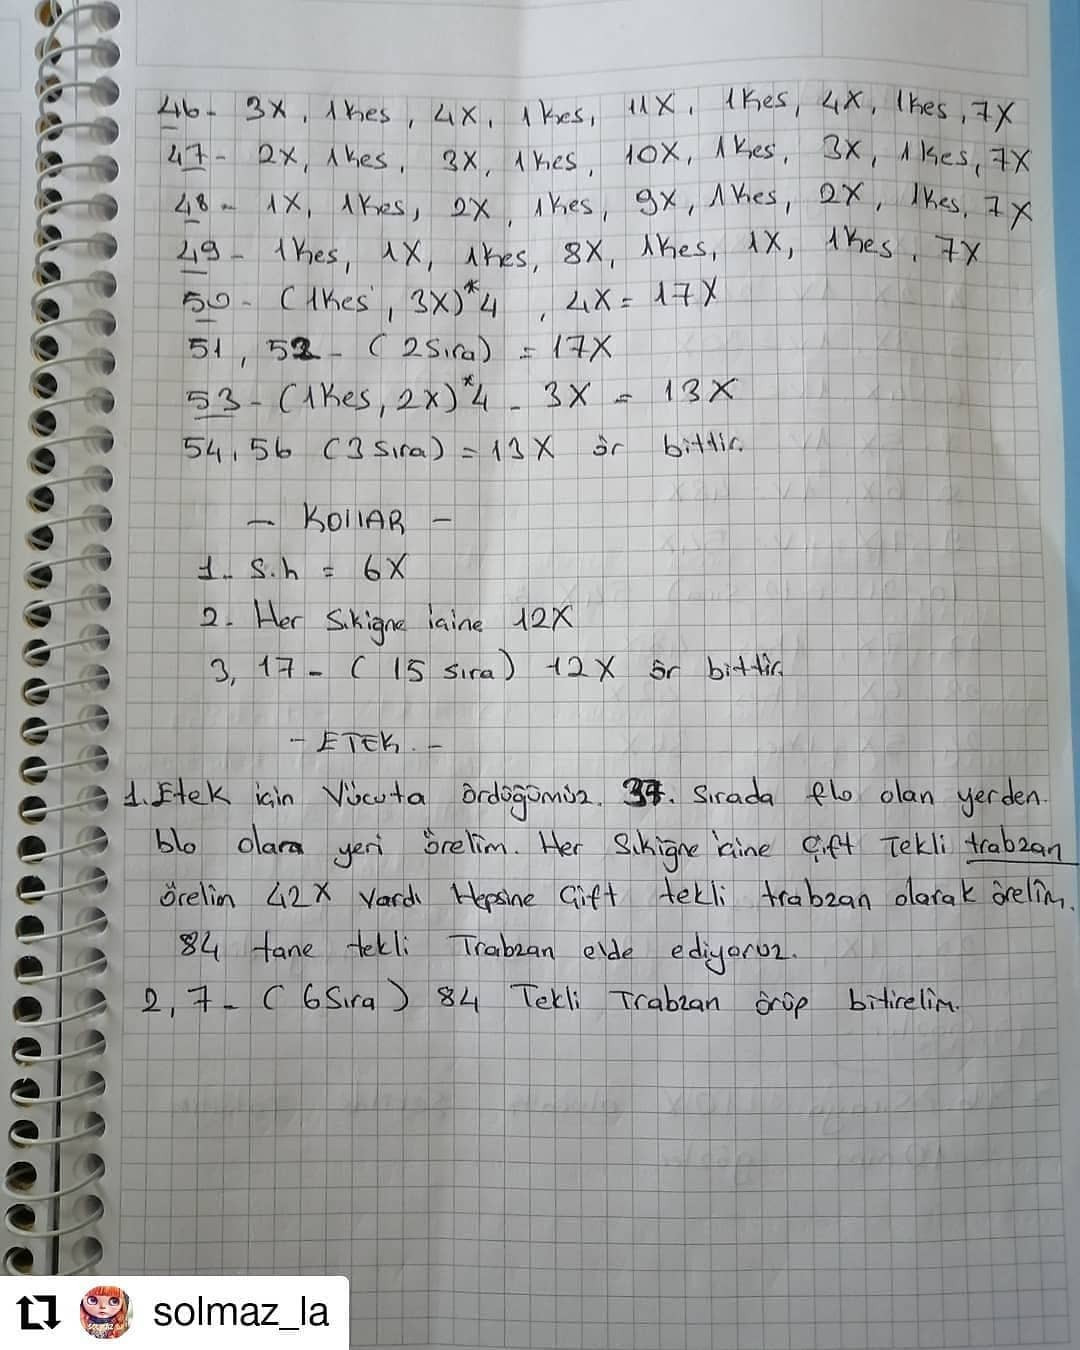 46- 3X, 1kes, 4X, 1kes, 11X, 1kes, 4X, 1kes, 7X
47- 2X, 1kes, 3X, 1kes, 10X, 1kes, 3X, 1kes, 7X
48- 1X, 1kes, 2X, 1kes, 9X, 1kes, 2X, 1kes, 7X
49- 1kes, 1X, 1kes, 8X, 1kes, 1X, 1kes, 7X
50- (1kes, 3X)*4, 4X = 17X
51, 52- (2Sıra) = 17X
53- (1kes, 2X)*4 - 3X = 13X
54, 56 (3 Sıra) = 13X ör bittir.
- KOllAR -
1- S.h = 6X
2- Her Sıkiğne içine 12X
3, 17- (15 sıra) 12X ör bittir.
- ETEK. -
1. Etek için Vücuta ördüğümüz. 37. Sırada flo olan yerden.
blo olara yeri örelim. Her Sıkiğne içine Çift Tekli trabzan
örelim 42X Vardı Hepsine Çift tekli trabzan olarak örelim.
84 tane tekli Trabzan elde ediyoruz.
2, 7- (6Sıra) 84 Tekli Trabzan örüp bitirelim.
solmaz_la